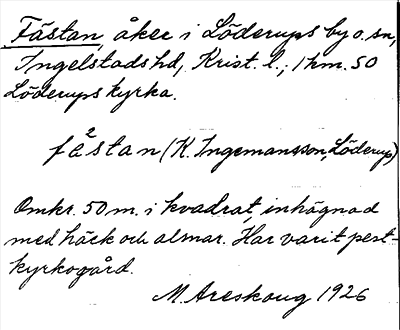 Fästan, åker i Löderups by o. sn,
Ingelstads hd, Krist. l.; 1 km. SO
Löderups kyrka.
fä²stan (K. Ingemansson, Löderup)
Omkr. 50 m. i kvadrat, inhägnad
med häck och almar. Har varit pest-
kyrkogård.
M. Areskoug 1926